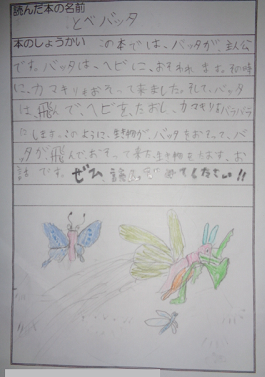 読んだ本の名前
とべバッタ
本のしょうかい この本では、バッタが、主人公
です。バッタは、ヘビに、おそわれます。その時
に、カマキリもおそって来ました。そしてバッタ
は、飛んで、ヘビを、たおし、カマキリをバラバラ
にします。このように、生き物が、バッタをおそって、バ
ッタが飛んで、おそって来た生き物をたおす、お
話です。ぜひ、読んでみてください!!